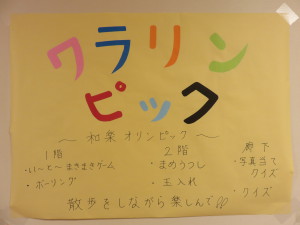 ワラリン
ピック
～ 和楽 オリンピック ～
1階
・い～と～まきまきゲーム
・ボーリング
2階
・まめうつし
・玉入れ
廊下
・写真当て
クイズ
・クイズ
散歩をしながら楽しんで